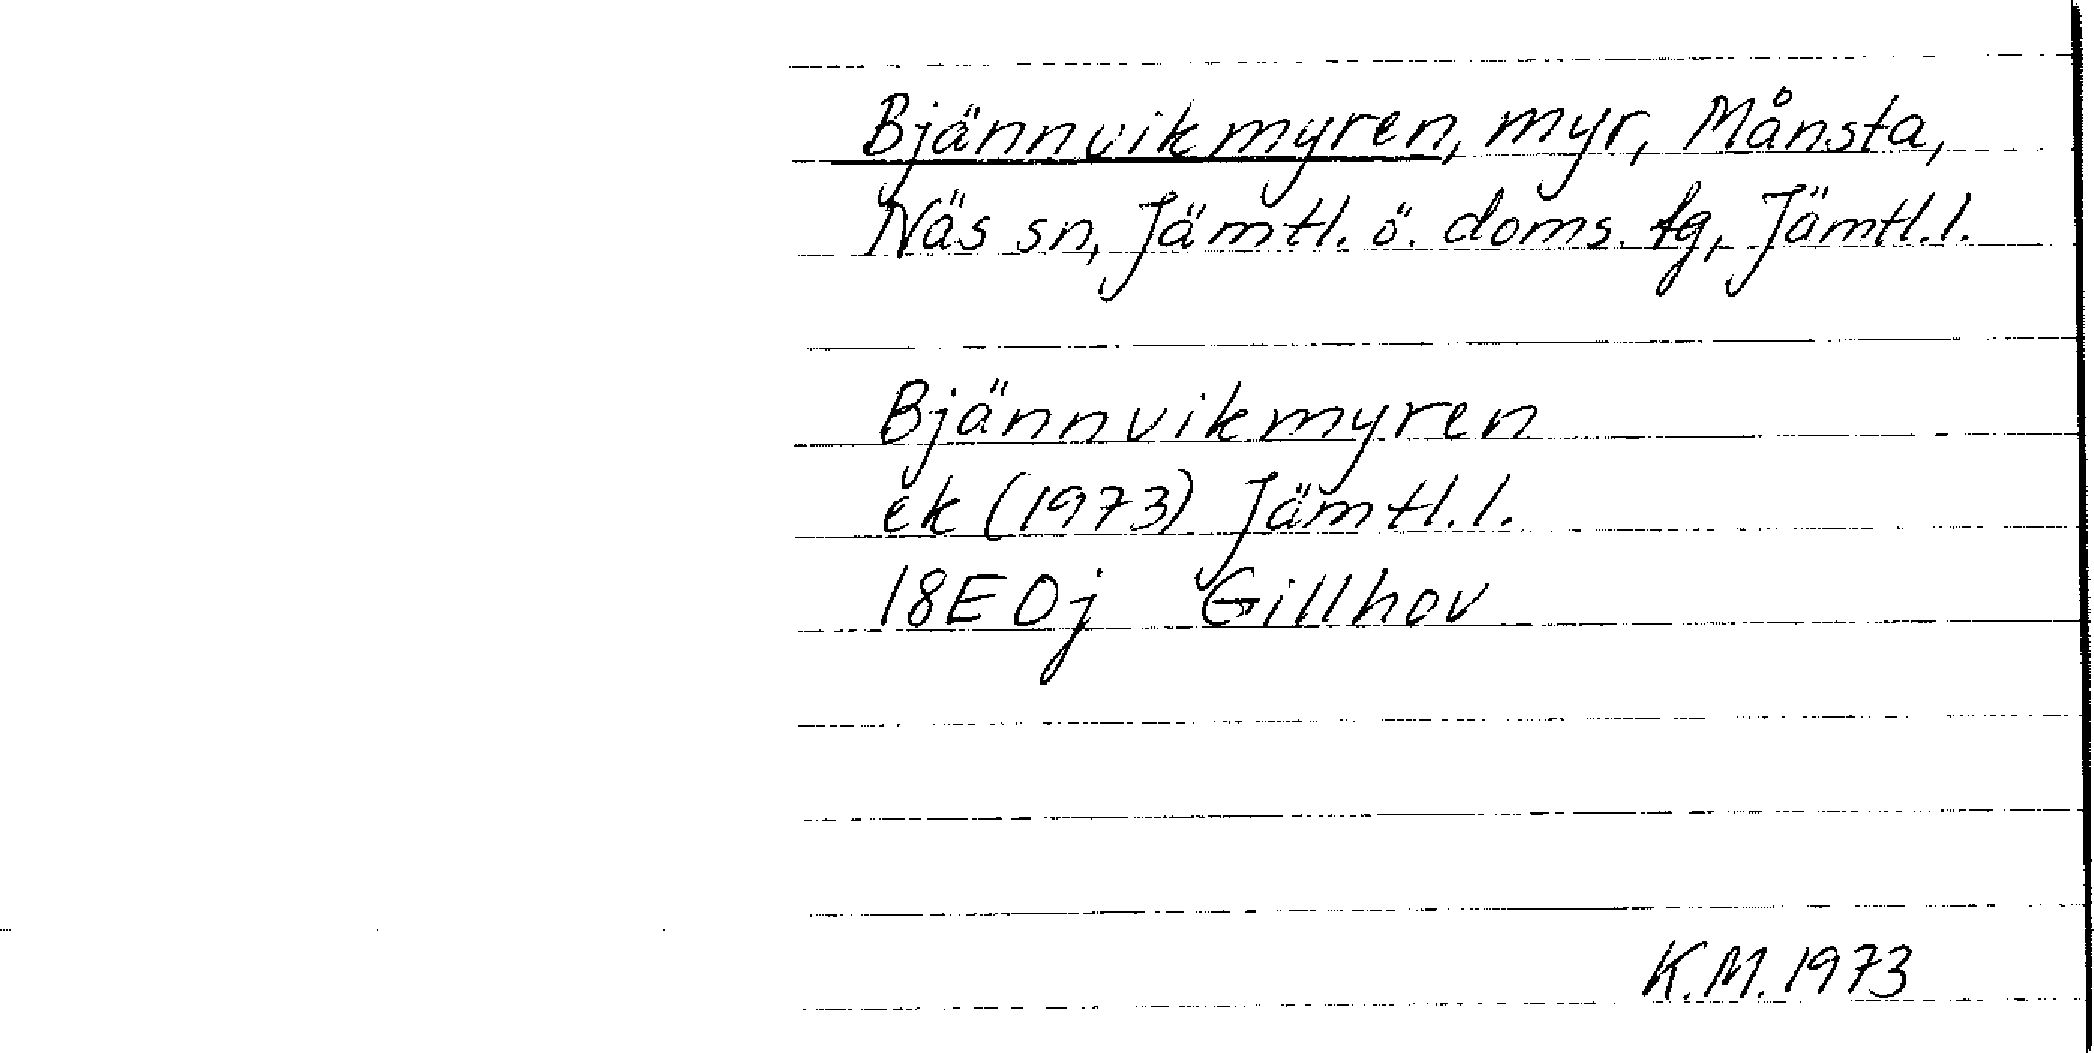 Bjännvikmyren, myr, Månsta,
Näs sn, Jämtl. ö. doms. tg, Jämtl.l.
Bjännvikmyren
ek (1973) Jämtl.l.
18E 0j Gillhov
K.M. 1973